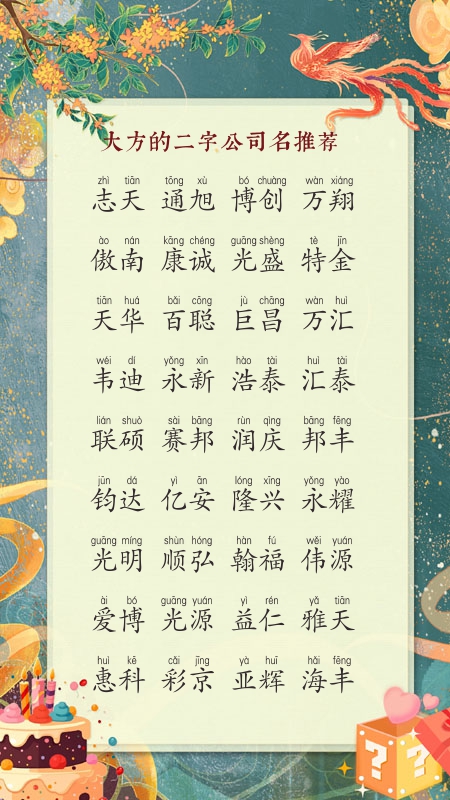 大方的二字公司名推荐
zhì tiān tōng xù bó chuàng wàn xiáng
志天 通旭 博创 万翔
ào nán kāng chéng guāng shèng tè jīn
傲南 康诚 光盛 特金
tiān huá bǎi cōng jù chāng wàn huì
天华 百聪 巨昌 万汇
wéi dí yǒng xīn hào tài huì tài
韦迪 永新 浩泰 汇泰
lián shuò sài bāng rùn qìng bāng fēng
联硕 赛邦 润庆 邦丰
jūn dá yì ān lóng xīng yǒng yào
钧达 亿安 隆兴 永耀
guāng míng shùn hóng hàn fú wěi yuán
光明 顺弘 翰福 伟源
ài bó guāng yuán yì rén yǎ tiān
爱博 光源 益仁 雅天
huì kē cǎi jīng yà huī hǎi fēng
惠科 彩京 亚辉 海丰
? ?